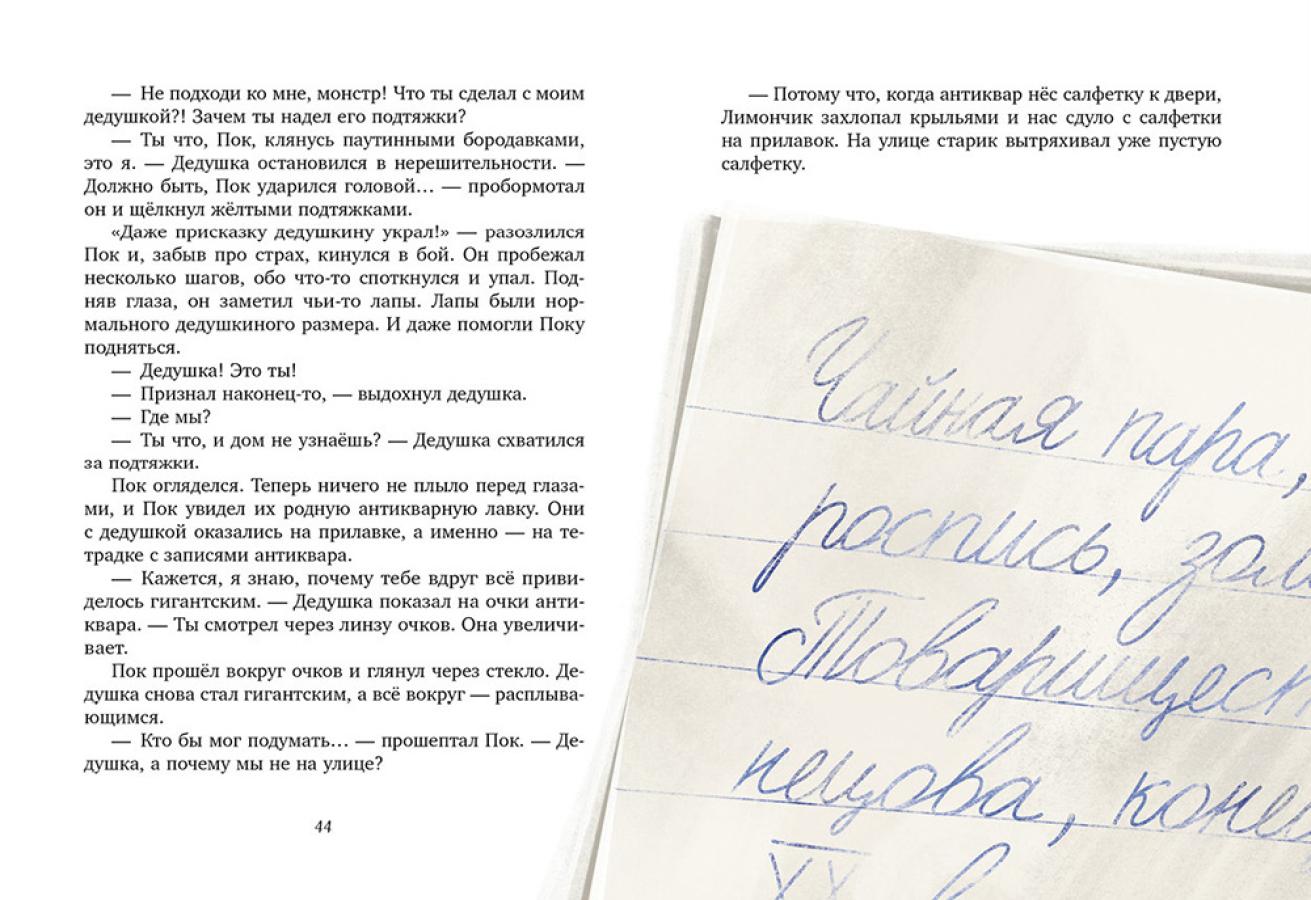 — Не подходи ко мне, монстр! Что ты сделал с моим
дедушкой?! Зачем ты надел его подтяжки?
— Ты что, Пок, клянусь паутинными бородавками,
это я. — Дедушка остановился в нерешительности. —
Должно быть, Пок ударился головой… — пробормотал
он и щёлкнул жёлтыми подтяжками.
«Даже присказку дедушкину украл!» — разозлился
Пок и, забыв про страх, кинулся в бой. Он пробежал
несколько шагов, обо что-то споткнулся и упал. Под-
няв глаза, он заметил чьи-то лапы. Лапы были нор-
мального дедушкиного размера. И даже помогли Поку
подняться.
— Дедушка! Это ты!
— Признал наконец-то, — выдохнул дедушка.
— Где мы?
— Ты что, и дом не узнаёшь? — Дедушка схватился
за подтяжки.
Пок огляделся. Теперь ничего не плыло перед глаза-
ми, и Пок увидел их родную антикварную лавку. Они
с дедушкой оказались на прилавке, а именно — на те-
традке с записями антиквара.
— Кажется, я знаю, почему тебе вдруг всё приви-
делось гигантским. — Дедушка показал на очки анти-
квара. — Ты смотрел через линзу очков. Она увеличи-
вает.
Пок прошёл вокруг очков и глянул через стекло. Де-
душка снова стал гигантским, а всё вокруг — расплыва-
ющимся.
— Кто бы мог подумать… — прошептал Пок. — Де-
душка, а почему мы не на улице?
44
— Потому что, когда антиквар нёс салфетку к двери,
Лимончик захлопал крыльями и нас сдуло с салфетки
на прилавок. На улице старик вытряхивал уже пустую
салфетку.
Чайная пара,
роспись, зол
Товариществ
нецова, конец
XX в